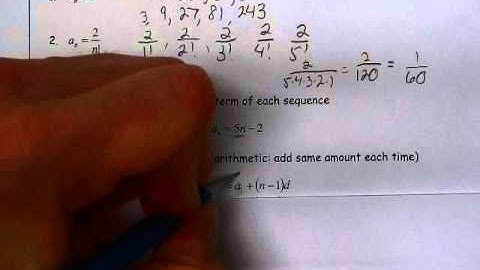 3, 9, 27, 81, 243
2. aₙ = 2/n! 2/1!, 2/2!, 2/3!, 2/4!, 2/5!
2/(5·4·3·2·1) = 2/120 = 1/60
term of each sequence
= 5n − 2
arithmetic: add same amount each time)
= a₁ + (n−1)d